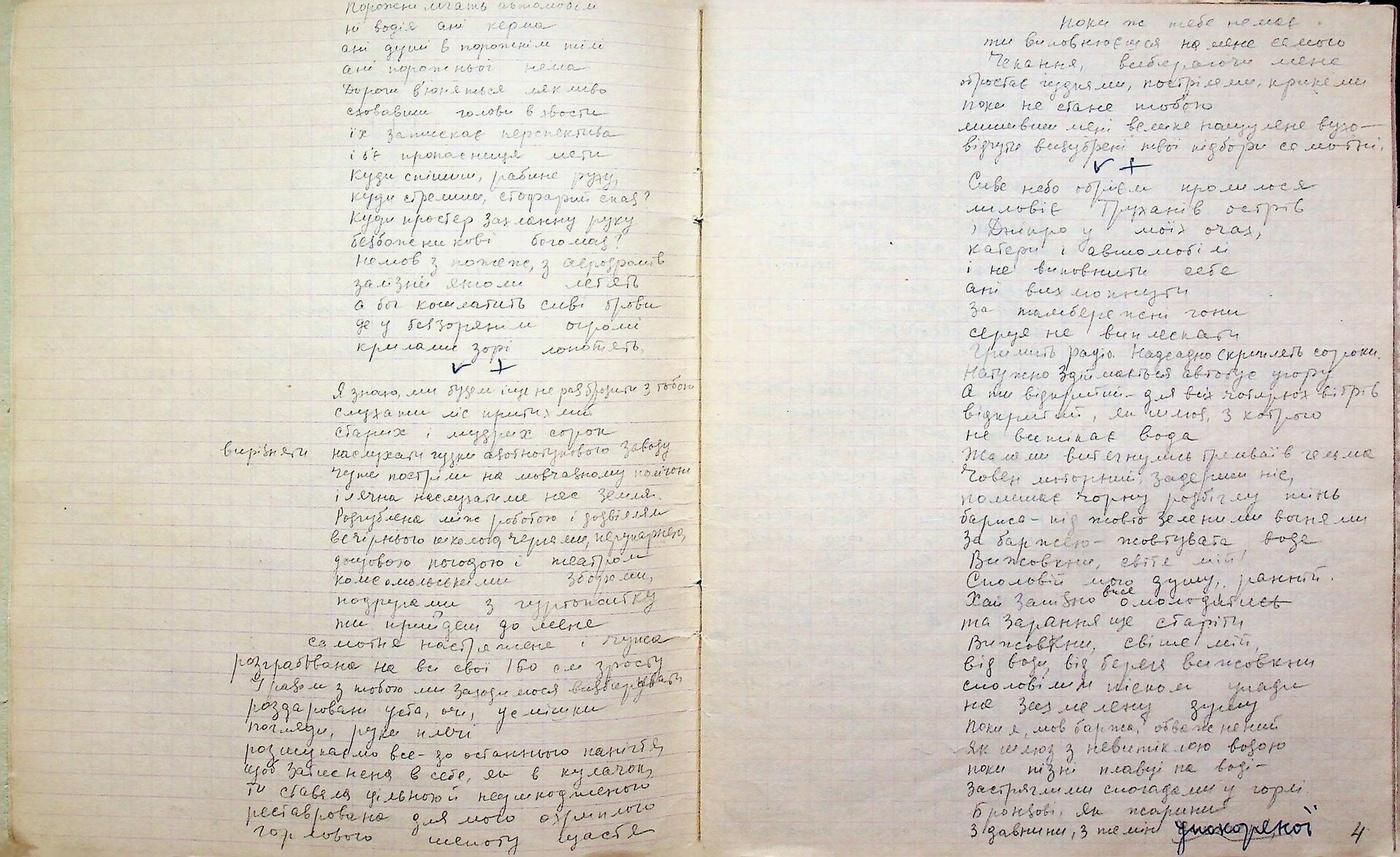 Порожні мчать автомобілі
ні водія ані керма
ані душі в порожнім тілі
ані порожньої нема
Дороги в'юняться лякливо
сховавши голови в хвости
їх запискає перспектива
і б'є пропасниця мети
Куди спішиш, рабине руху,
куди стремиш,
Куди простер захланну руку
безбожникові богомаз?
Немов з пожеж, з аеродромів
залізні янголи летять
а бог кошлатить сиві брови
де у беззорянім огромі
крилами зорі лопотять.
Я знаю, ми будем іще не раз бродити з тобою
слухати ліс притихлий
старих і мудрих сорок
вирізняти наслухати гудки азотнотукового заводу
чужі постріли на мовчазному полігоні
і лячна наслухатиме нас земля.
Розгублена між роботою і дозвіллям
вечірньою школою, чергами, перукарнею,
дощовою погодою і театром
комсомольськими зборами,
подругами з гуртожитку
ти прийдеш до мене
самотня насторожена і чужа
розграбована на всі свої 160 см зросту
І разом з тобою ми заходимося визбирувати
роздаровані уста, очі, усмішки
погляди, руки плечі
розшукаємо все - до останнього нанігтя,
щоб затиснена в себе, як в кулачок,
ти ставала цільною й неушкодженою
реставрована для мого
горлового шепоту щастя
Поки ж тебе немає.
ти виповнюєшся на мене самого
Чекання, вибираючи мене
обростає гудками, пострілами, криками
поки не стане тобою
лишивши мені велике нашулене вухо -
відчути визубрені твої підбори самотні.
Сиве небо обрієм промилося
лиловіє Труханів острів
і Дніпро у моїх очах,
катери і автомобілі
і не виповнити себе
ані вихлюпнути
За тамбережні гони
серця не виплескати
Гримить радіо. Надсадно скриплять сороки.
Натужно здіймається автобус угору
А ти відкритий - для всіх чотирьох вітрів
відкритий, як шлюз, з котрого
не витікає вода
Жалом витягнулись трамваїв гальма
Човен моторний, задерши ніс,
полишає чорну розбіглу тінь
баржа - під жовто зеленими вогнями
За баржею - жовтувата вода
Вижовкни, світе мій!
Споловій мою душу, ранній.
Хай запізно вже омолодитись
та зарання ще старіти
Вижовкни, світе мій,
від води, від берега вижовкни
споловілим піском упади
на захмелену душу
Поки я, мов баржа, обважнений
Як шлюз з невитіклою водою
поки пізні плавці на воді -
застряглими спогадами у горлі.
Бронзові, як
З давнини, з темін упокореної
4